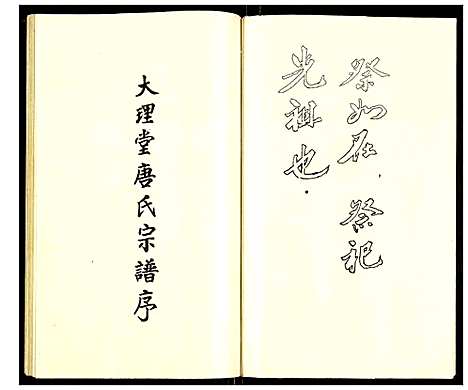 祭如在祭祀
光祖也
大理堂唐氏宗譜序